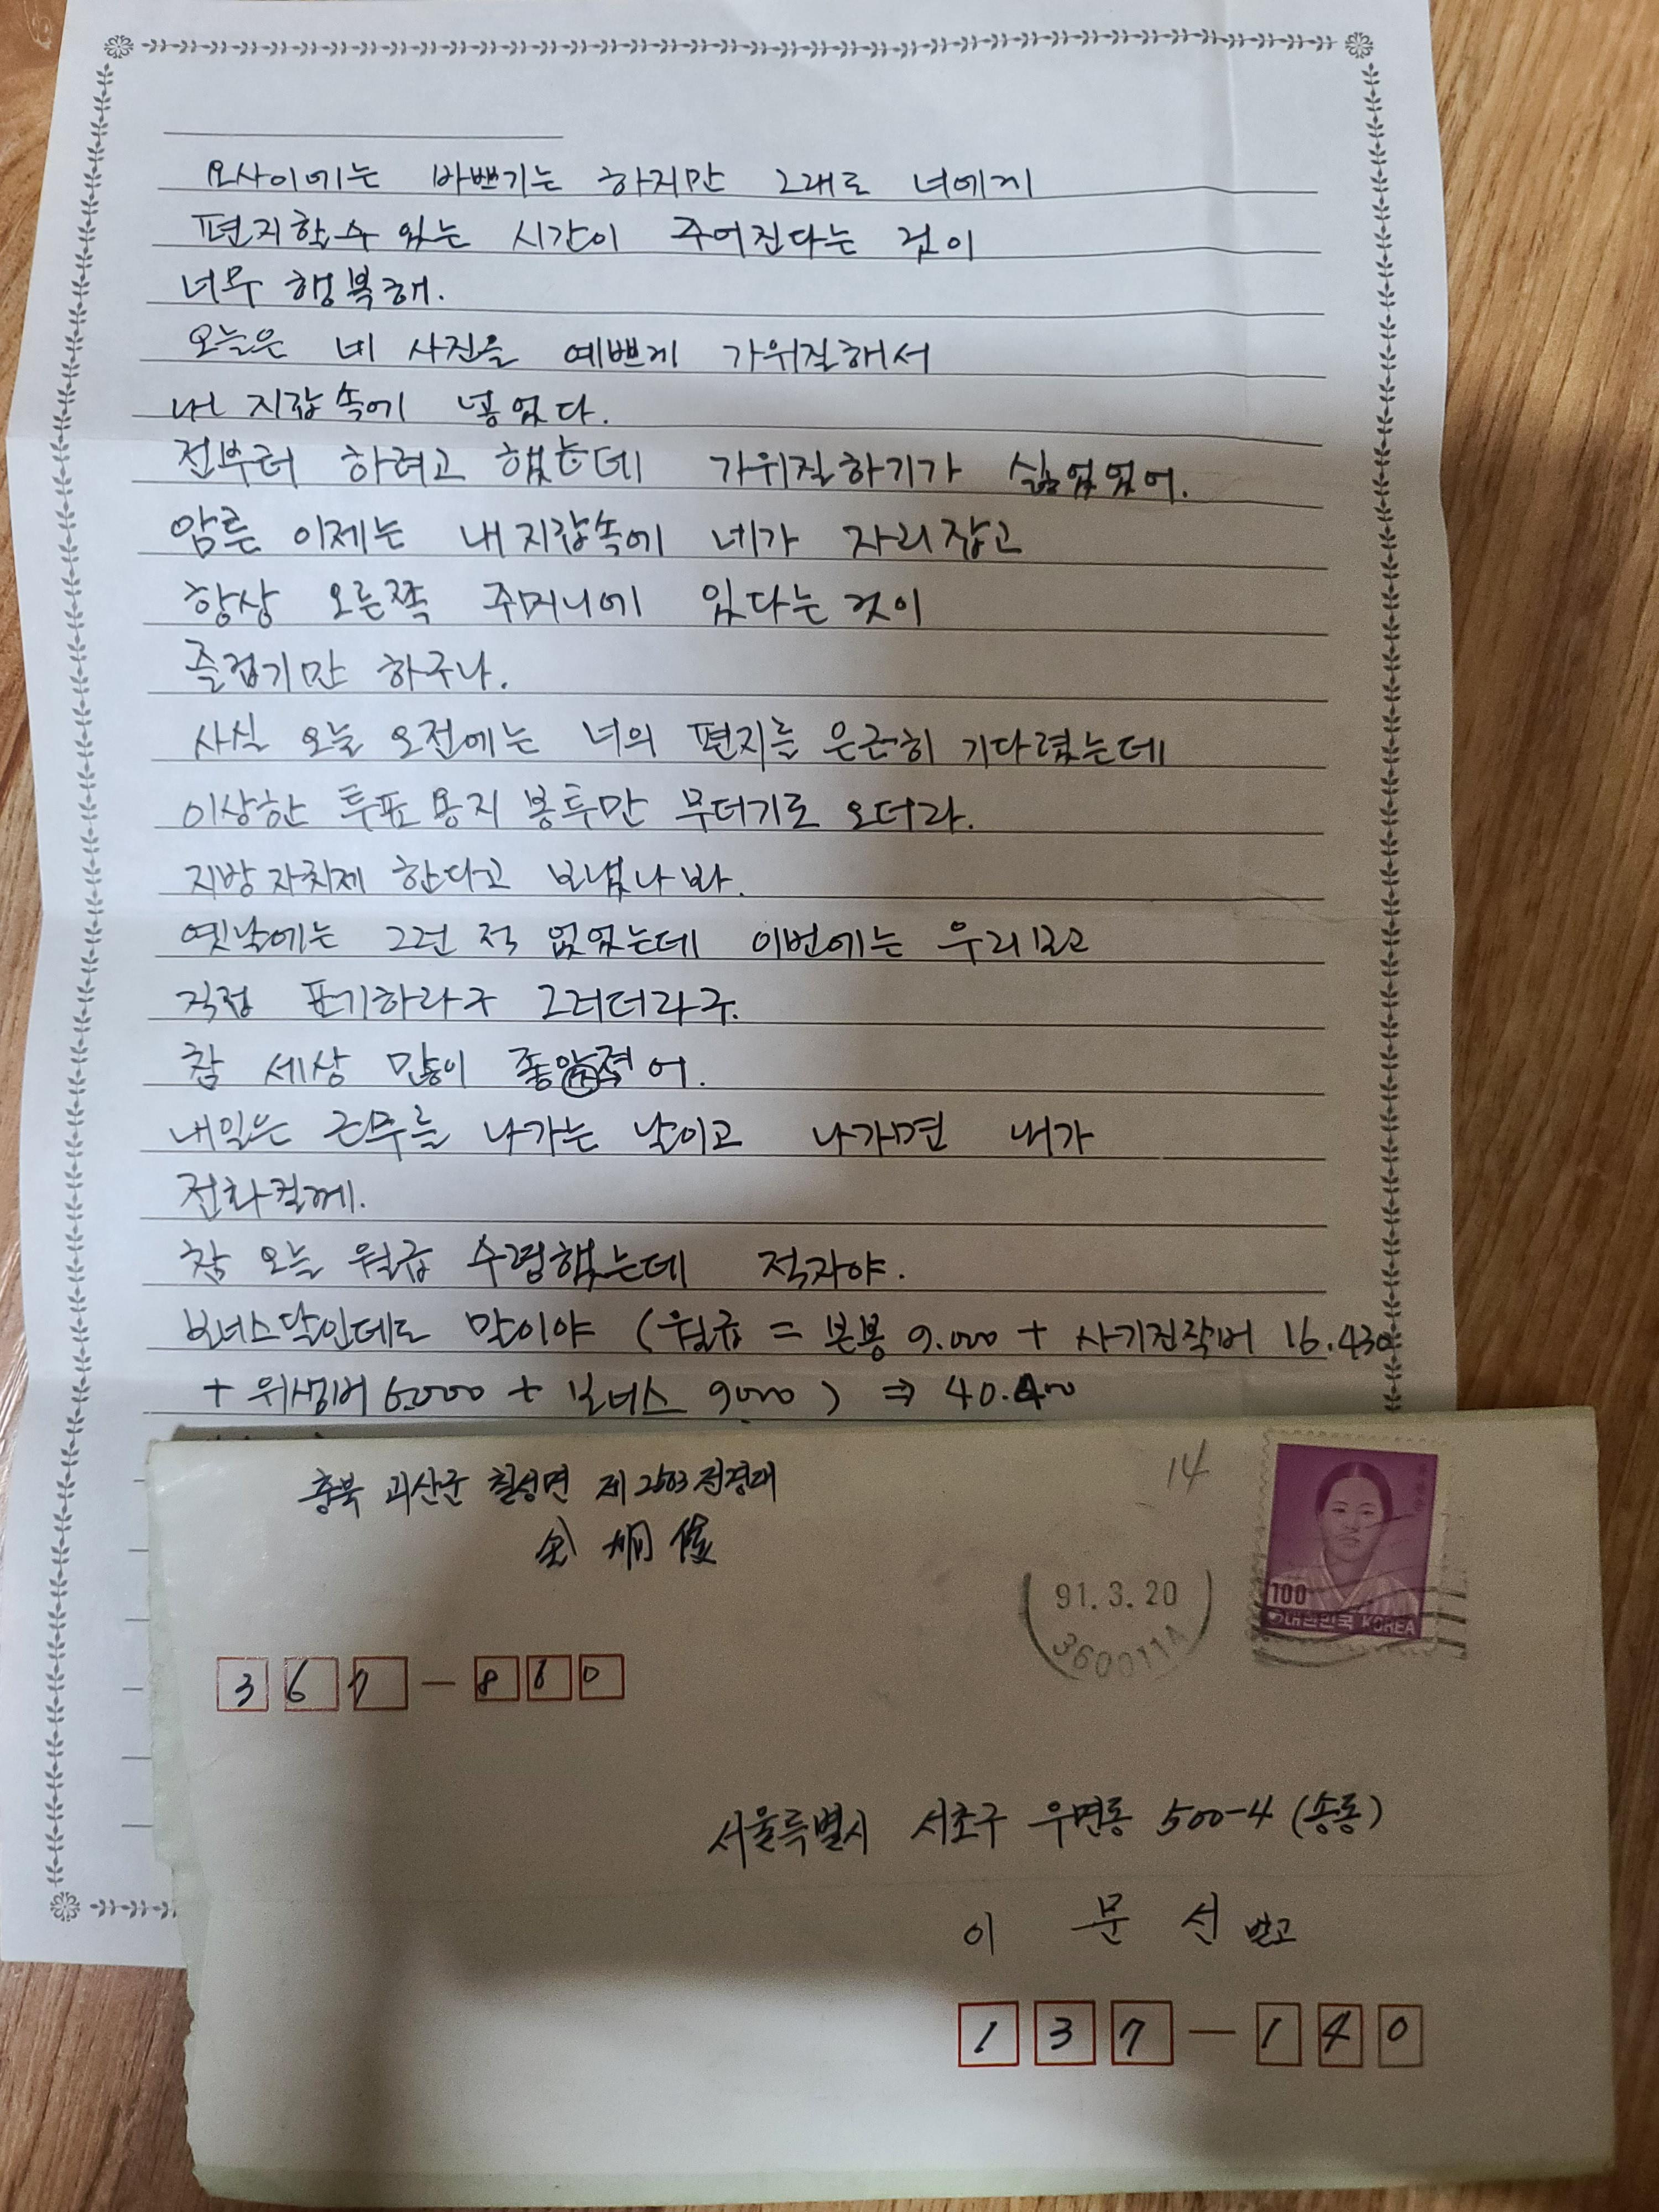 요사이에는 바쁘기는 하지만 그래도 너에게
편지할수 있는 시간이 주어진다는 것이
너무 행복해.
오늘은 네 사진을 예쁘게 가위질해서
내 지갑속에 넣었다.
전부터 하려고 했는데 가위질하기가 싫었었어.
암튼 이제는 내 지갑속에 네가 자리잡고
항상 오른쪽 주머니에 있다는 것이
즐겁기만 하구나.
사실 오늘 오전에는 너의 편지를 은근히 기다렸는데
이상한 투표 용지 봉투만 무더기로 오더라.
지방자치제 한다고 보냈나봐.
옛날에는 그런 적 없었는데 이번에는 우리보고
직접 표기하라구 그러더라구.
참 세상 많이 좋아졌어.
내일은 근무를 나가는 날이고 나가면 내가
전화걸께.
참 오늘 월급 수령했는데 적자야.
보너스달인데도 말이야 (월급 = 본봉 9.000 + 사기진작비 16.430
+ 위생비 6.000 + 보너스 9000) ⇒ 40.400
충북 괴산군 칠성면 제2503전경대
14
金 炯 俊
91.3.20
360011A
100
대한민국 KOREA
367-860
서울특별시 서초구 우면동 500-4 (송동)
이 문 선 받고
137-140